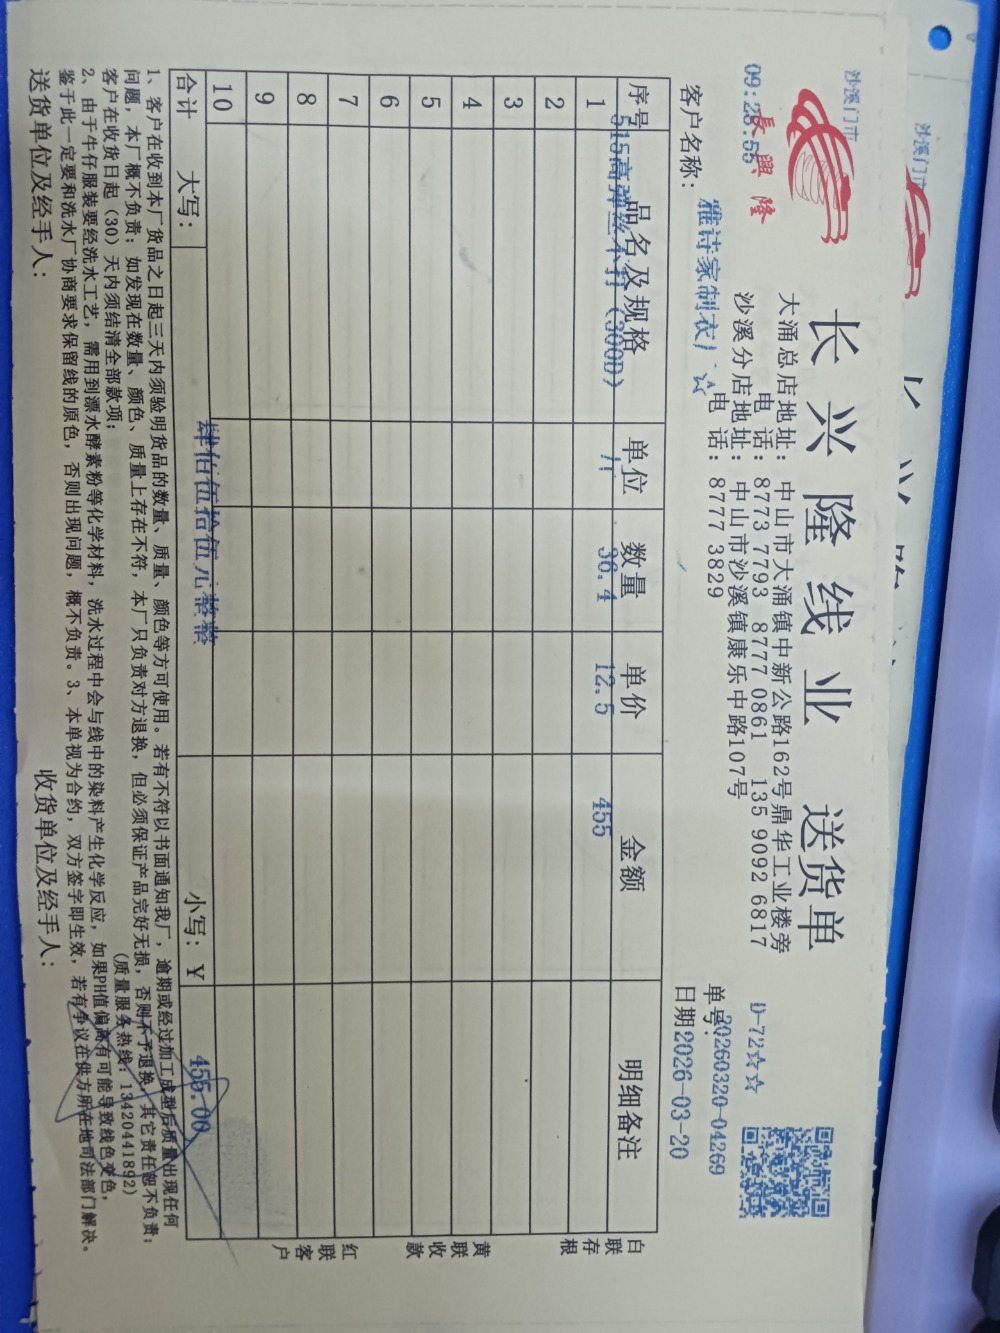 沙溪门市
沙溪门市
09:28:55
長興隆
长兴隆线业 送货单
大涌总店地址: 中山市大涌镇中新公路162号鼎华工业楼旁
电 话: 8773 7793 8777 0861 135 9092 6817
沙溪分店地址: 中山市沙溪镇康乐中路107号
电 话: 8777 3829
D-72☆☆
单号: 20260320-04269
客户名称: 雅诗家制衣厂 ☆
日期: 2026-03-20
序号 品名及规格 单位 数量 单价 金额 明细备注
1 515高弹丝 (300D) 36.4 12.5 455
2
3
4
5
6
7
8
9
10
合计 大写: 肆佰伍拾伍元整整 小写: ¥ 455.00
白联存根
黄联收款
红联客户
1、客户在收到本厂货品之日起三天内须验明货品的数量、质量、颜色等方可使用。若有不符以书面通知我厂，逾期或经过加工成型后质量出现任何
问题，本厂概不负责；如发现在数量、颜色、质量上存在不符，本厂只负责对方退换，但必须保证产品完好无损，否则不予退换，其它责任恕不负责；
客户在收货日起（30）天内须结清全部款项；
(质量服务热线: 13420441892)
2、由于牛仔服装要经洗水工艺，需用到漂水酵素粉等化学材料，洗水过程中会与线中的染料产生化学反应，如果PH值偏高有可能导致线色变色，
鉴于此一定要和洗水厂协商要求保留线的原色，否则出现问题，概不负责。3、本单视为合约，双方签字即生效，若有争议在供方所在地司法部门解决。
送货单位及经手人:
收货单位及经手人: